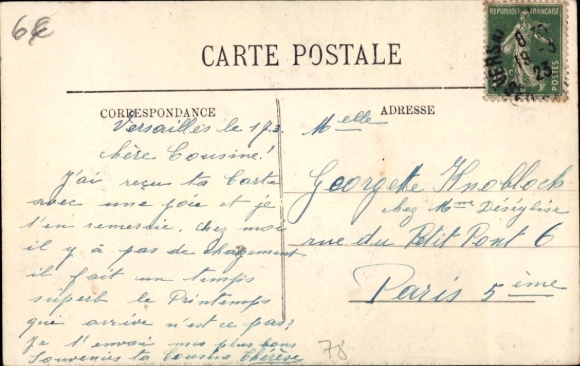 6€
CARTE POSTALE
REPUBLIQUE FRANÇAISE
POSTES
8
19 - 3
23
CORRESPONDANCE
Versailles le 17.3.
chère Cousine!
J'ai reçu ta Carte
avec une joie et je
t'en remercie. Chez moi
il y à pas de changement
il fait un temps
superb le Printemps
qui arrive n'est ce pas?
Je t'envoi mes plus bons
Souvenirs ta Cousine Thérèse
ADRESSE
Melle
Georgette Knobloch
chez Mme Déséglise
rue du Petit Pont 6
Paris 5ème
78